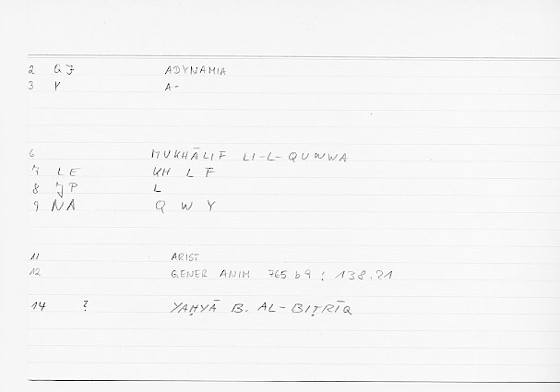 2 GJ ADYNAMIA
3 Y A-
6 MUKHĀLIF LI-L-QUWWA
7 LE KH L F
8 JP L
9 NA Q W Y
11 ARIST
12 GENER ANIM 765 b9 ; 138.21
14 ? YAḤYĀ B. AL-BIṬRĪQ